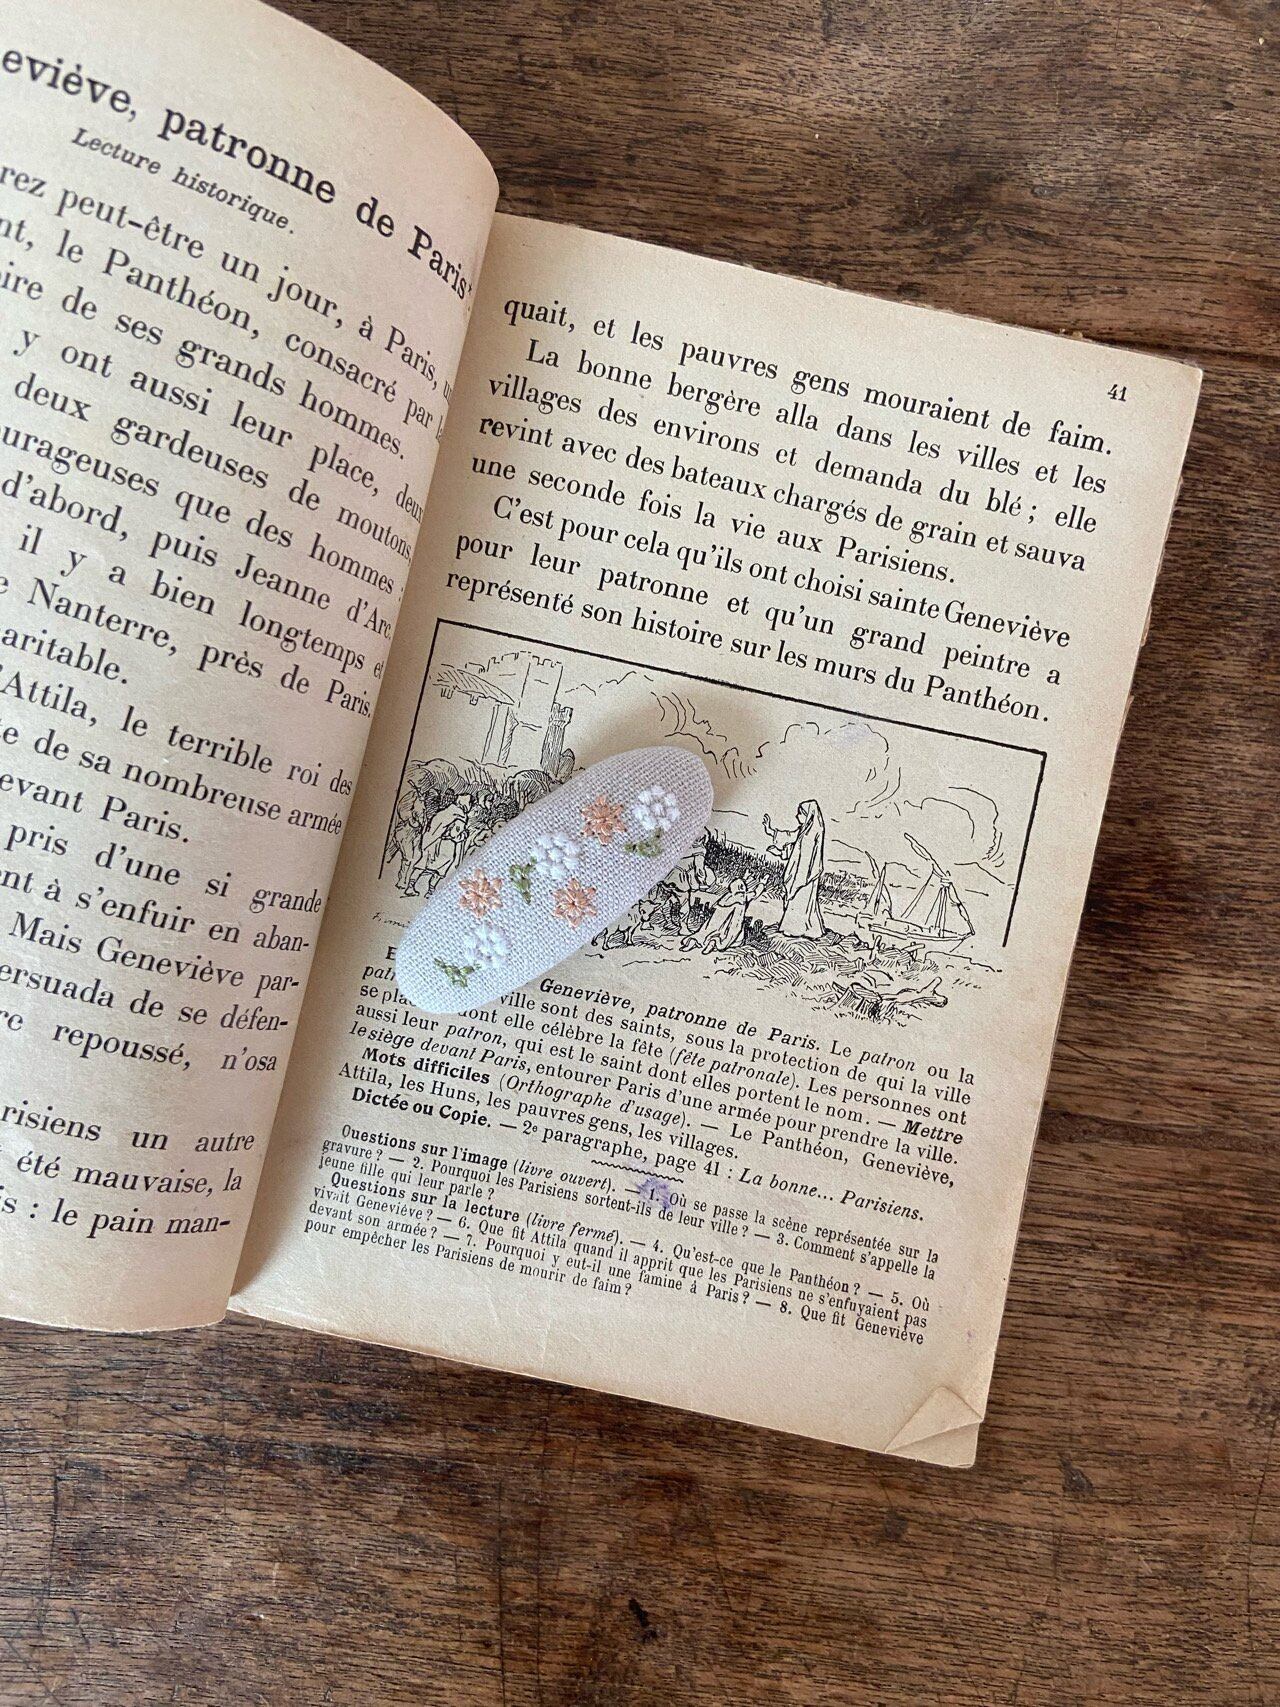 eviève, patronne de Paris*
Lecture historique.
rez peut-être un jour, à Paris,
nt, le Panthéon, consacré par
ire de ses grands hommes.
y ont aussi leur place, deux
deux gardeuses de moutons,
urageuses que des hommes :
d'abord, puis Jeanne d'Arc.
il y a bien longtemps et
e Nanterre, près de Paris,
aritable.
'Attila, le terrible roi des
te de sa nombreuse armée
evant Paris.
pris d'une si grande
nt à s'enfuir en aban-
Mais Geneviève par-
ersuada de se défen-
re repoussé, n'osa
risiens un autre
été mauvaise, la
is : le pain man-
41
quait, et les pauvres gens mouraient de faim.
La bonne bergère alla dans les villes et les
villages des environs et demanda du blé ; elle
revint avec des bateaux chargés de grain et sauva
une seconde fois la vie aux Parisiens.
C'est pour cela qu'ils ont choisi sainte Geneviève
pour leur patronne et qu'un grand peintre a
représenté son histoire sur les murs du Panthéon.
E Geneviève, patronne de Paris. Le patron ou la
pat ville sont des saints, sous la protection de qui la ville
se pla dont elle célèbre la fête (fête patronale). Les personnes ont
aussi leur patron, qui est le saint dont elles portent le nom. — Mettre
le siège devant Paris, entourer Paris d'une armée pour prendre la ville.
Mots difficiles (Orthographe d'usage). — Le Panthéon, Geneviève,
Attila, les Huns, les pauvres gens, les villages.
Dictée ou Copie. — 2e paragraphe, page 41 : La bonne... Parisiens.
Questions sur l'image (livre ouvert). — 1. Où se passe la scène représentée sur la
gravure ? — 2. Pourquoi les Parisiens sortent-ils de leur ville ? — 3. Comment s'appelle la
jeune fille qui leur parle ?
Questions sur la lecture (livre fermé). — 4. Qu'est-ce que le Panthéon ? — 5. Où
vivait Geneviève ? — 6. Que fit Attila quand il apprit que les Parisiens ne s'enfuyaient pas
devant son armée ? — 7. Pourquoi y eut-il une famine à Paris ? — 8. Que fit Geneviève
pour empêcher les Parisiens de mourir de faim ?